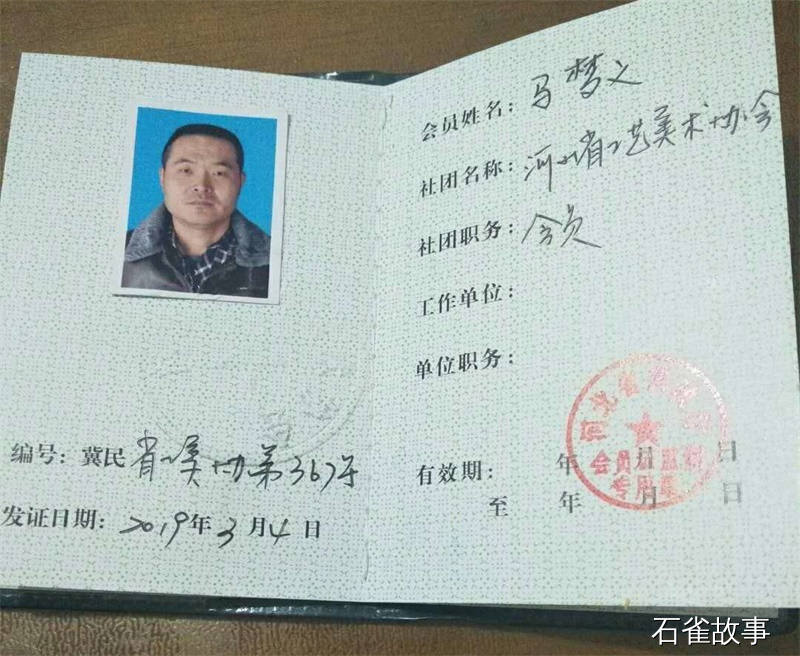 编号：冀民省工美协第367号
发证日期：2019年3月4日
会员姓名：马梦义
社团名称：河北省工艺美术协会
社团职务：会员
工作单位：
单位职务：
有效期： 年 月 日
至 年 月 日
河北省
专用章
石雀故事